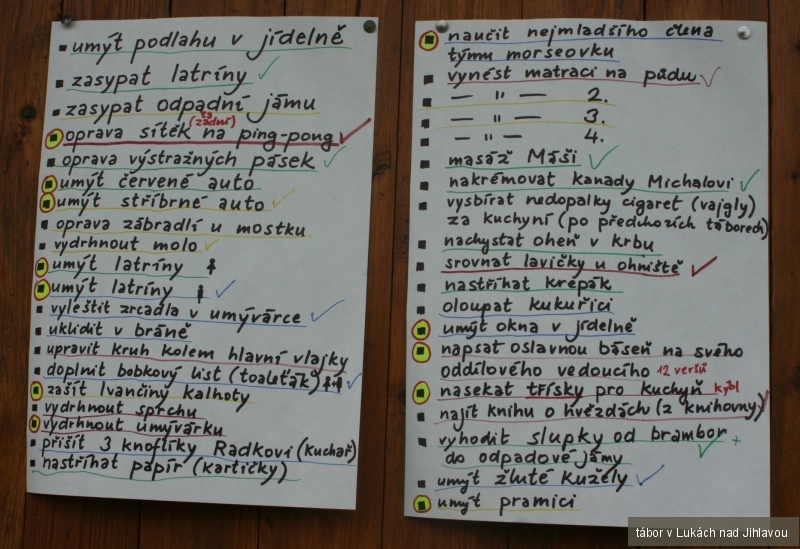 umýt podlahu v jídelně
zasypat latríny
zasypat odpadní jámu
oprava sítěk na ping-pong
(za zádní)
oprava výstražných pásek
umýt červené auto
umýt stříbrné auto
oprava zábradlí u mostku
vydrhnout molo
umýt latríny
umýt latríny
vyleštit zrcadla v umývárce
uklidit v bráně
upravit kruh kolem hlavní vlajky
doplnit bobkový list (toaleťák)
zašít Ivančiny kalhoty
vydrhnout sprchu
vydrhnout umývárku
přišít 3 knoflíky Radkovi (kuchař)
nastříhat papír (kartičky)
naučit nejmladšího člena
týmu morseovku
vynést matraci na půdu
— " — 2.
— " — 3.
— " — 4.
masáž Máši
nakrémovat kanady Michalovi
vysbírat nedopalky cigaret (vajgly)
za kuchyní (po předchozích táborech)
nachystat oheň v krbu
srovnat lavičky u ohniště
nastříhat krepák
oloupat kukuřici
umýt okna v jídelně
napsat oslavnou báseň na svého
oddílového vedoucího 12 veršů
nasekat třísky pro kuchyň kýbl
najít knihu o hvězdách (z knihovny)
vyhodit slupky od brambor
do odpadové jámy
umýt žluté kužely
umýt pramici
tábor v Lukách nad Jihlavou